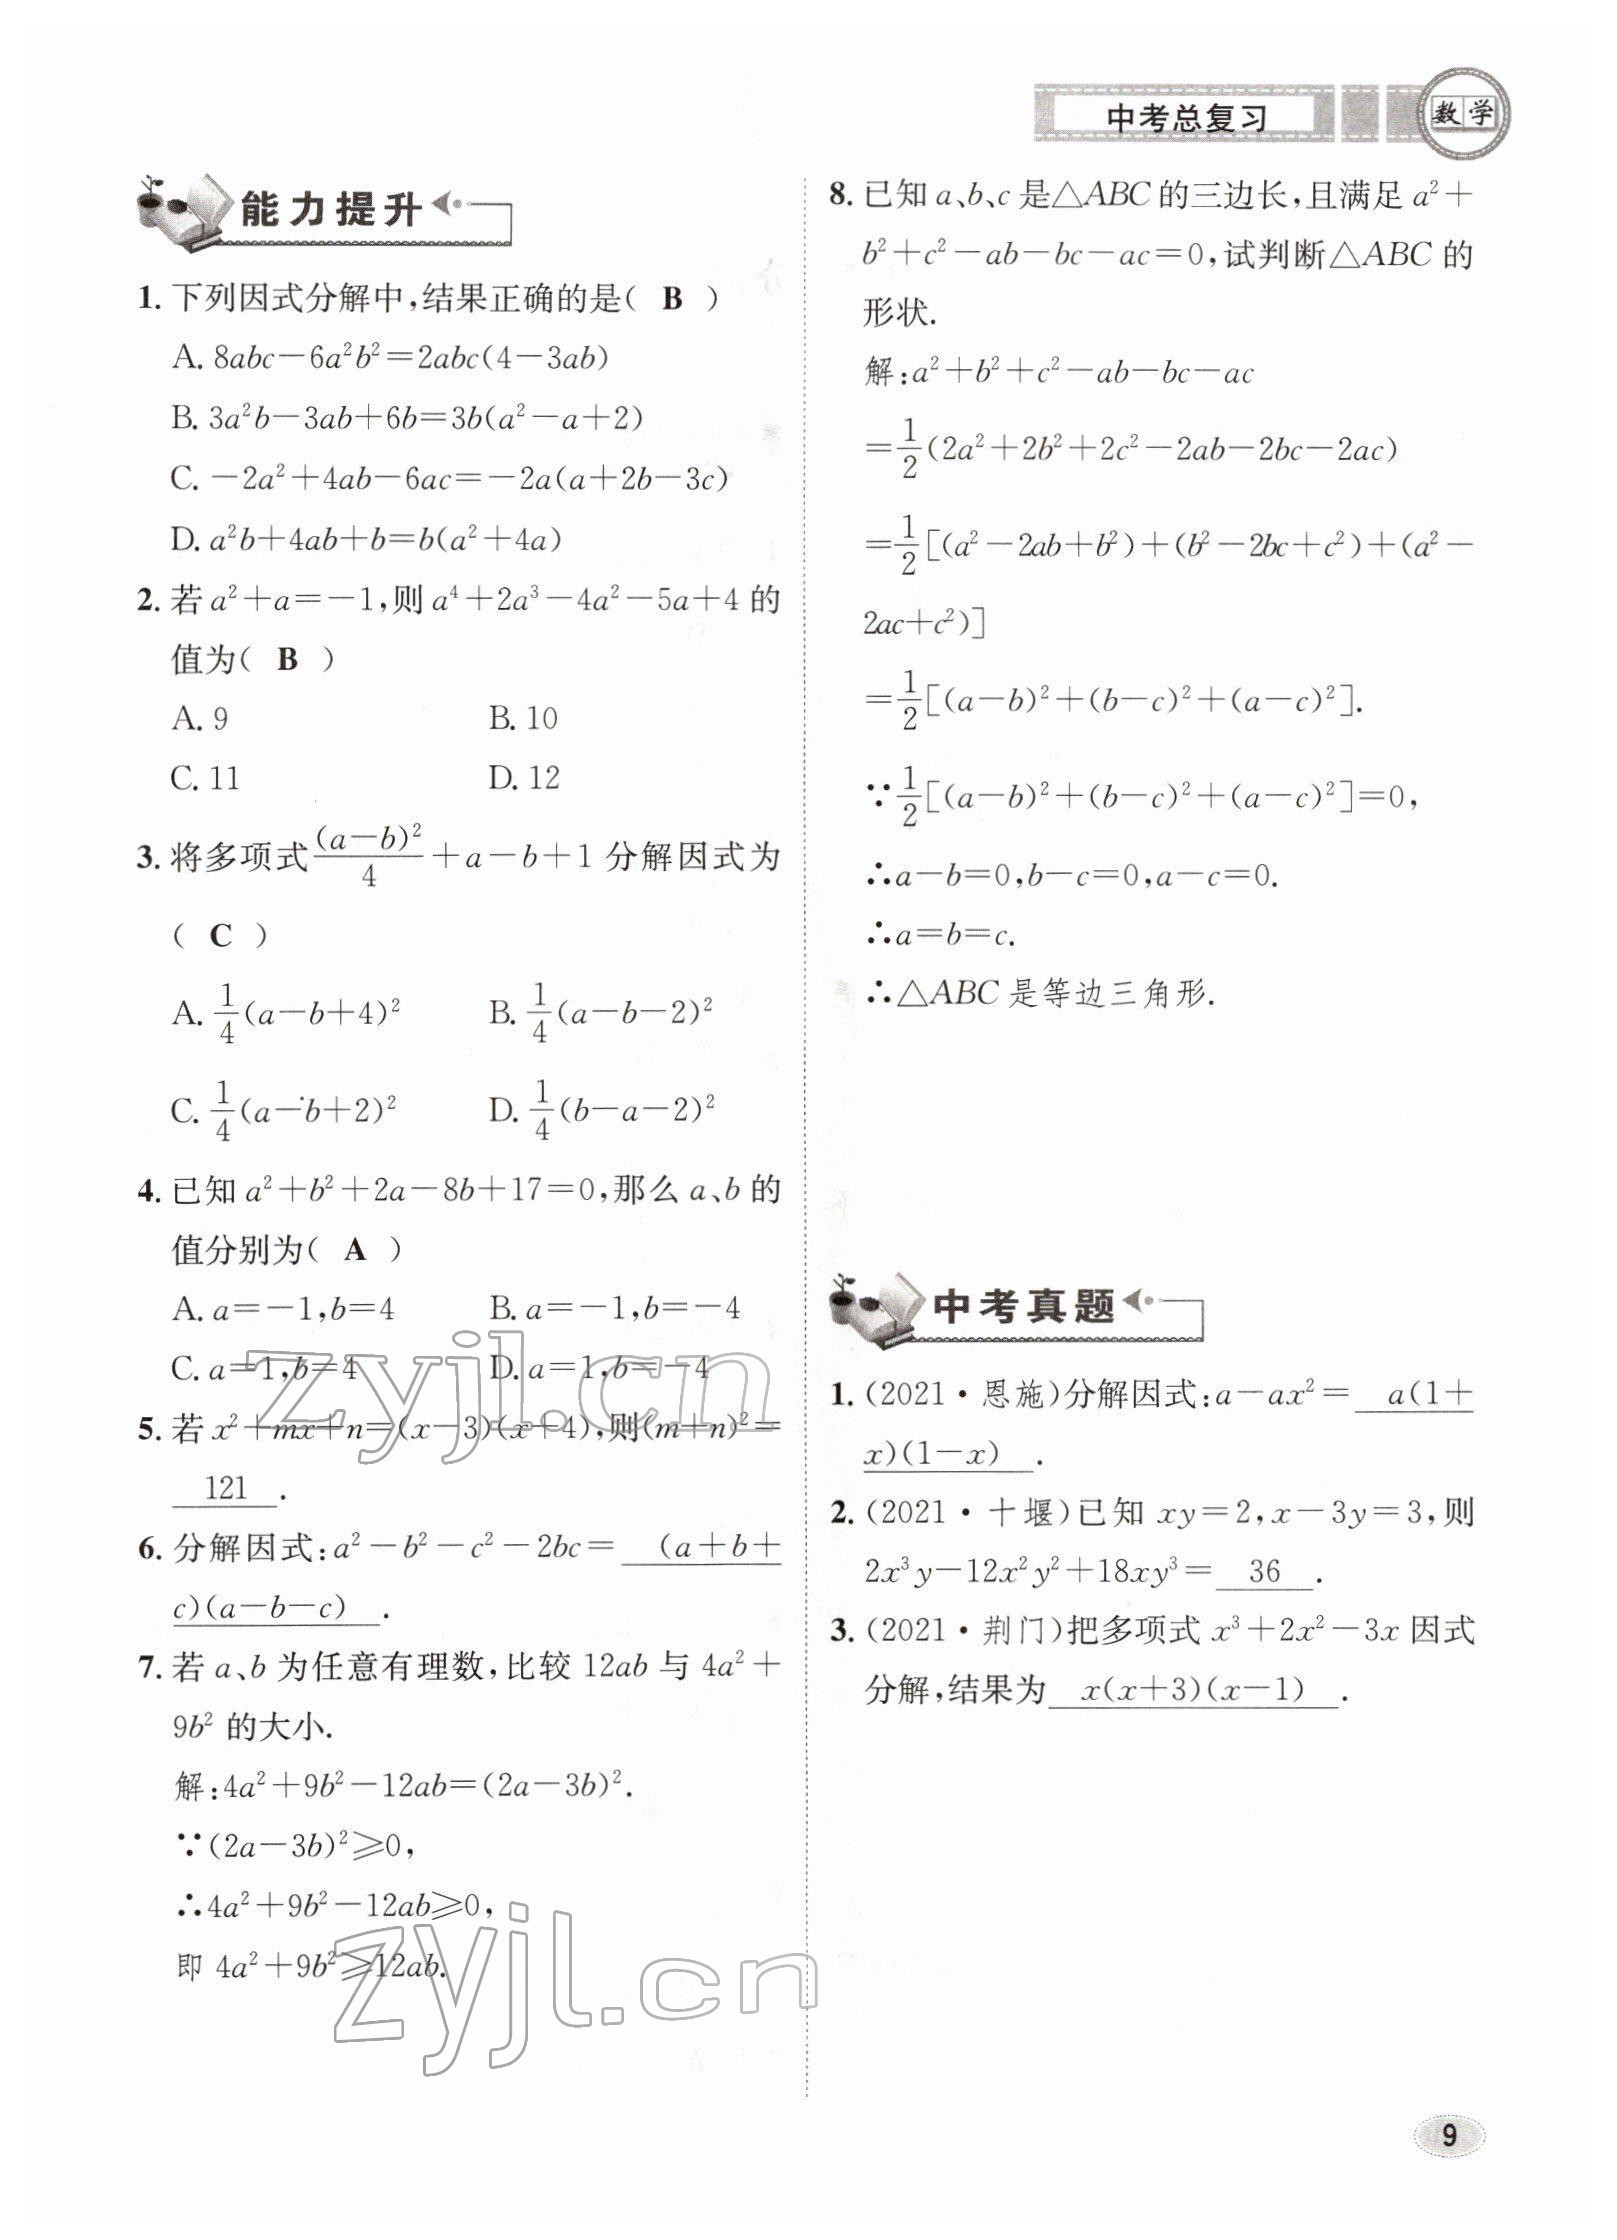 中考总复习 数学
能力提升
1. 下列因式分解中,结果正确的是( B )
A. 8abc－6a²b²＝2abc(4－3ab)
B. 3a²b－3ab＋6b＝3b(a²－a＋2)
C. －2a²＋4ab－6ac＝－2a(a＋2b－3c)
D. a²b＋4ab＋b＝b(a²＋4a)
2. 若 a²＋a＝－1,则 a⁴＋2a³－4a²－5a＋4 的
值为( B )
A. 9 B. 10
C. 11 D. 12
3. 将多项式 (a－b)²/4 ＋a－b＋1 分解因式为
( C )
A. 1/4(a－b＋4)² B. 1/4(a－b－2)²
C. 1/4(a－b＋2)² D. 1/4(b－a－2)²
4. 已知 a²＋b²＋2a－8b＋17＝0,那么 a、b 的
值分别为( A )
A. a＝－1,b＝4 B. a＝－1,b＝－4
C. a＝1,b＝4 D. a＝1,b＝－4
5. 若 x²＋mx＋n＝(x－3)(x＋4),则(m＋n)²＝
121 .
6. 分解因式:a²－b²－c²－2bc＝ (a＋b＋
c)(a－b－c) .
7. 若 a、b 为任意有理数,比较 12ab 与 4a²＋
9b² 的大小.
解:4a²＋9b²－12ab＝(2a－3b)².
∵(2a－3b)²≥0,
∴4a²＋9b²－12ab≥0,
即 4a²＋9b²≥12ab.
8. 已知 a、b、c 是△ABC 的三边长,且满足 a²＋
b²＋c²－ab－bc－ac＝0,试判断△ABC 的
形状.
解:a²＋b²＋c²－ab－bc－ac
＝1/2(2a²＋2b²＋2c²－2ab－2bc－2ac)
＝1/2[(a²－2ab＋b²)＋(b²－2bc＋c²)＋(a²－
2ac＋c²)]
＝1/2[(a－b)²＋(b－c)²＋(a－c)²].
∵1/2[(a－b)²＋(b－c)²＋(a－c)²]＝0,
∴a－b＝0,b－c＝0,a－c＝0.
∴a＝b＝c.
∴△ABC 是等边三角形.
中考真题
1. (2021·恩施)分解因式:a－ax²＝ a(1＋
x)(1－x) .
2. (2021·十堰)已知 xy＝2,x－3y＝3,则
2x³y－12x²y²＋18xy³＝ 36 .
3. (2021·荆门)把多项式 x³＋2x²－3x 因式
分解,结果为 x(x＋3)(x－1) .
zyjl.cn
zyjl.cn
9